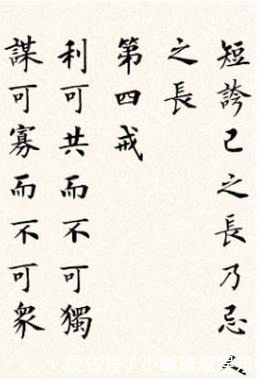 短誇己之長乃忌
之長
第四戒
利可共而不可獨
謀可寡而不可眾
快传号